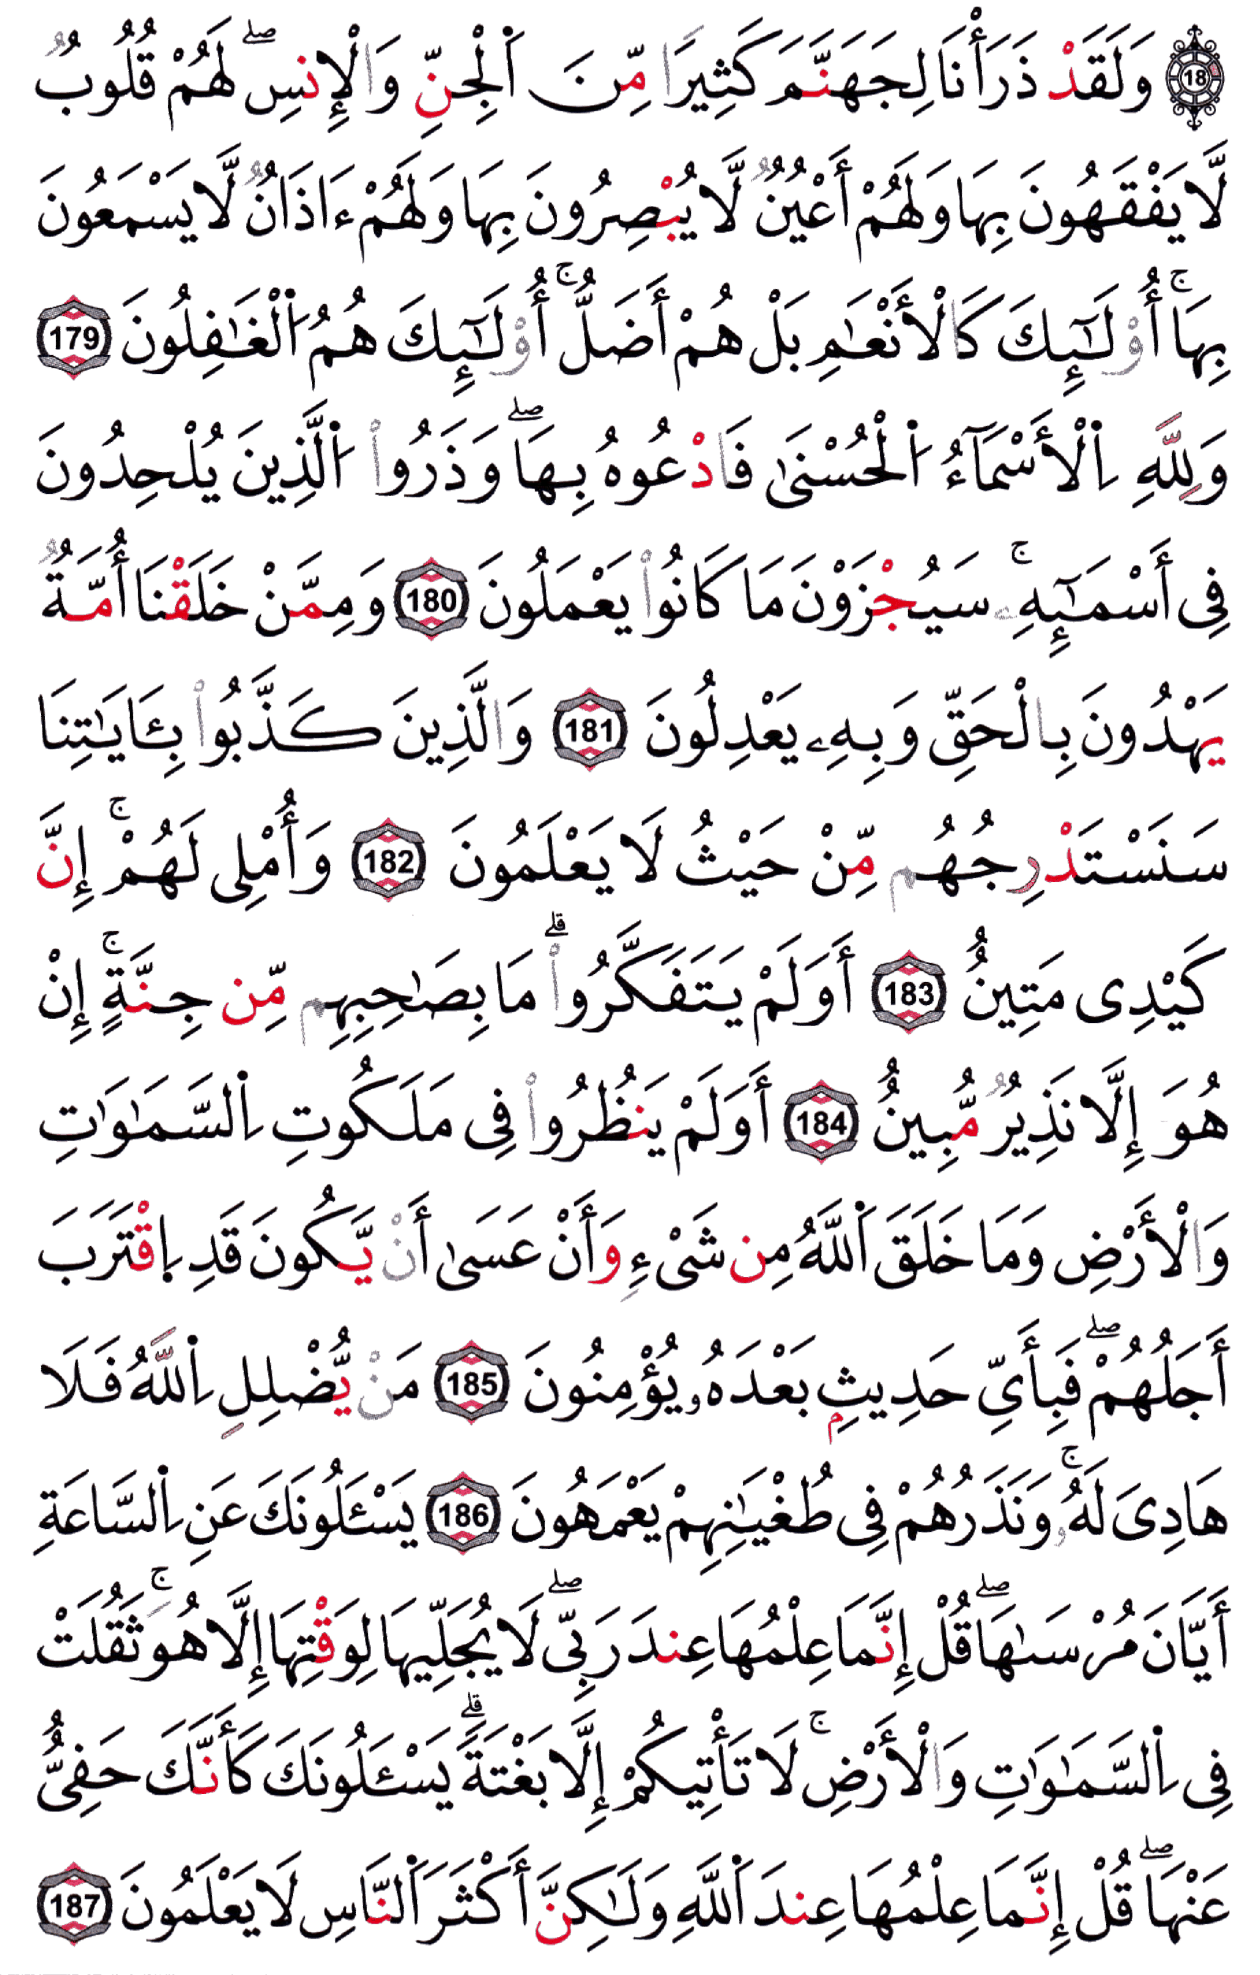 18 وَلَقَدْ ذَرَأْنَا لِجَهَنَّمَ كَثِيرًا مِّنَ اَلْجِنِّ وَالْإِنسِ ۖ لَهُمْ قُلُوبٌ
لَّا يَفْقَهُونَ بِهَا وَلَهُمْ أَعْيُنٌ لَّا يُبْصِرُونَ بِهَا وَلَهُمْ ءَاذَانٌ لَّا يَسْمَعُونَ
بِهَا ۚ أُوْلَٰٓئِكَ كَالْأَنْعَٰمِ بَلْ هُمْ أَضَلُّ ۚ أُوْلَٰٓئِكَ هُمُ اَلْغَٰفِلُونَ 179
وَلِلَّهِ اِلْأَسْمَآءُ اَلْحُسْنَىٰ فَادْعُوهُ بِهَا ۖ وَذَرُواْ اَلَّذِينَ يُلْحِدُونَ
فِى أَسْمَٰٓئِهِۦ ۚ سَيُجْزَوْنَ مَا كَانُواْ يَعْمَلُونَ 180 وَمِمَّنْ خَلَقْنَا أُمَّةٌ
يَهْدُونَ بِالْحَقِّ وَبِهِۦ يَعْدِلُونَ 181 وَالَّذِينَ كَذَّبُواْ بِـَٔايَٰتِنَا
سَنَسْتَدْرِجُهُم مِّنْ حَيْثُ لَا يَعْلَمُونَ 182 وَأُمْلِى لَهُمْ ۚ إِنَّ
كَيْدِى مَتِينٌ 183 أَوَلَمْ يَتَفَكَّرُواْ ۗ مَا بِصَٰحِبِهِم مِّن جِنَّةٍ ۚ إِنْ
هُوَ إِلَّا نَذِيرٌ مُّبِينٌ 184 أَوَلَمْ يَنظُرُواْ فِى مَلَكُوتِ اِلسَّمَٰوَٰتِ
وَالْأَرْضِ وَمَا خَلَقَ اَللَّهُ مِن شَىْءٍ وَأَنْ عَسَىٰ أَنْ يَّكُونَ قَدِ اِقْتَرَبَ
أَجَلُهُمْ ۖ فَبِأَيِّ حَدِيثِۭ بَعْدَهُۥ يُؤْمِنُونَ 185 مَنْ يُّضْلِلِ اِللَّهُ فَلَا
هَادِىَ لَهُۥ ۚ وَنَذَرُهُمْ فِى طُغْيَٰنِهِمْ يَعْمَهُونَ 186 يَسْـَٔلُونَكَ عَنِ اِلسَّاعَةِ
أَيَّانَ مُرْسَىٰهَا ۖ قُلْ إِنَّمَا عِلْمُهَا عِندَ رَبِّى ۖ لَا يُجَلِّيهَا لِوَقْتِهَا إِلَّا هُوَ ۚ ثَقُلَتْ
فِى اِلسَّمَٰوَٰتِ وَالْأَرْضِ ۚ لَا تَأْتِيكُمْ إِلَّا بَغْتَةً ۗ يَسْـَٔلُونَكَ كَأَنَّكَ حَفِىٌّ
عَنْهَا ۖ قُلْ إِنَّمَا عِلْمُهَا عِندَ اَللَّهِ وَلَٰكِنَّ أَكْثَرَ اَلنَّاسِ لَا يَعْلَمُونَ 187